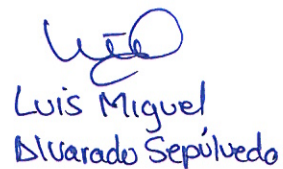 Luis Miguel
Alvarado Sepúlveda